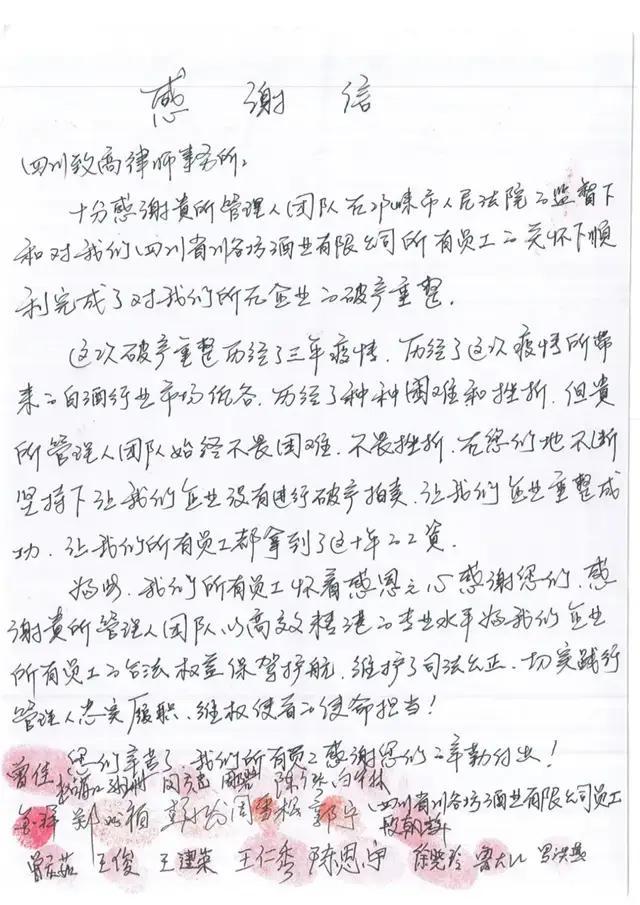 感谢信
四川致高律师事务所:
十分感谢贵所管理人团队在邛崃市人民法院的监督下
和对我们四川省川谷坊酒业有限公司所有员工的关怀下顺
利完成了对我们所在企业的破产重整.
这次破产重整历经了三年疫情.历经了这次疫情所带
来的白酒行业市场低谷.历经了种种困难和挫折.但贵
所管理人团队始终不畏困难.不畏挫折.在您们地不断
坚持下让我们企业没有进行破产拍卖.让我们企业重整成
功.让我们所有员工都拿到了这十年的工资.
为此.我们所有员工怀着感恩之心感谢您们.感
谢贵所管理人团队以高效精湛的专业水平为我们企业
所有员工的合法权益保驾护航.维护了司法公正.切实践行
管理人忠实履职.维权使者的使命担当!
您们辛苦了.我们所有员工感谢您们的辛勤付出!
曾佳
四川省川谷坊酒业有限公司员工
郭宁
王俊 王建荣 王仁秀 陈恩宁 徐晓玲